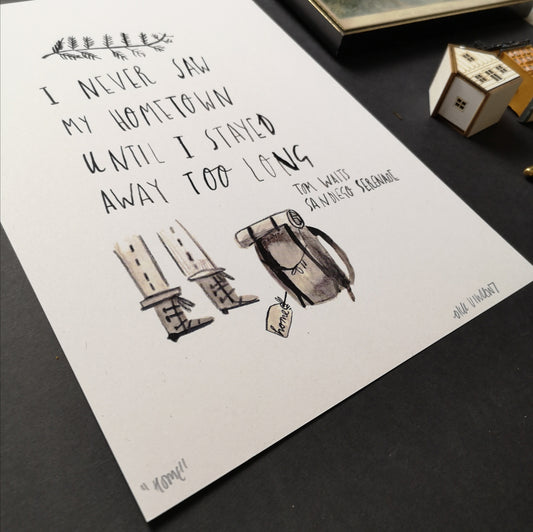 I NEVER SAW
MY HOMETOWN
UNTIL I STAYED
AWAY TOO LONG
TOM WAITS
SAN DIEGO SERENADE
home
"Home"
VINCENT